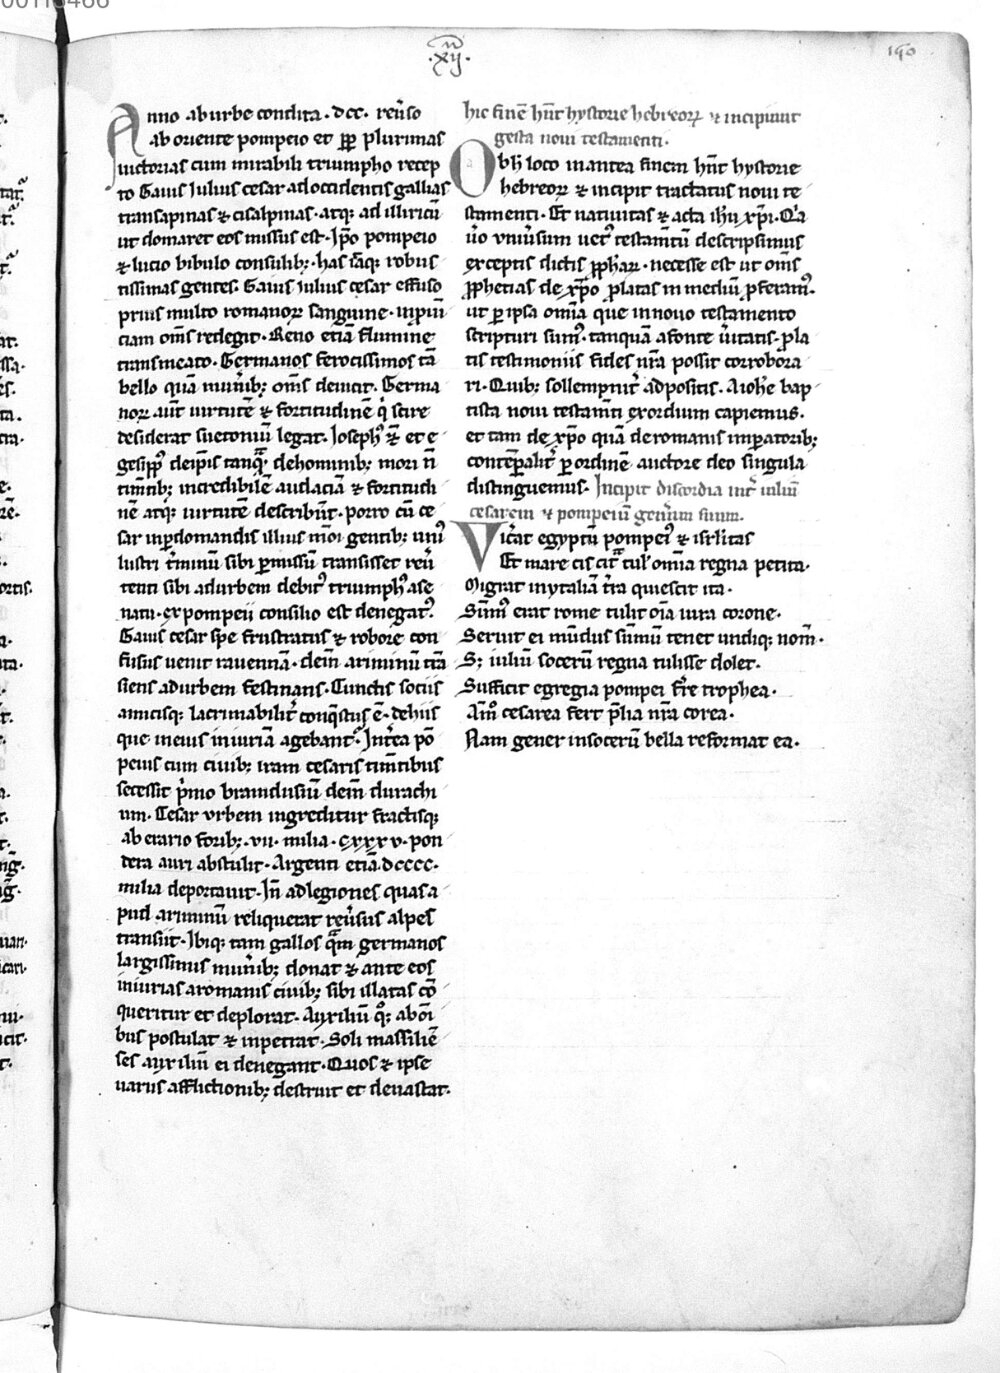 .xij.
190
Anno ab urbe condita .dcc. reũso
ab oriente pompeio et ꝓp plurimas
uictorias cum mirabili triumpho recep
to Gaius iulius cesar ad occidentis gallias
transapinas & cisalpinas . atq; ad illiricũ
ut domaret eos missus est . Ip̃o pompeio
& lucio bibulo consulib; . has itaq; robus
tissimas gentes . Gaius iulius cesar effuso
prius multo romanoꝝ sanguine .
ciam om̃s redegit . Reno etiã flumine
transmeato . Germanos ferocissimos tã
bello quã munib; om̃s deuicit . Germa
noꝝ aut̃ uirtutẽ & fortitudinẽ q̃ scire
desiderat suetoniũ legat . Ioseph⁹ & et e
gesipp⁹ de ip̃is tanq̃ de hominib; mori ñ
tim̃tib; incredibilẽ audaciã & fortitudi
nẽ atq; uirtutẽ describũt . porro cũ ce
sar inꝑdomandis illius mõi gentib; uni⁹
lustri t̃minũ sibi ꝑmissũ transisset reũ
tenti sibi ad urbem debit⁹ triumph⁹ a se
natu . ex pompeii consilio est denegat⁹ .
Gaius cesar spe frustratus & robore con
fusus uenit rauennã . dein̄ ariminũ trã
siens ad urbem festinans . Cunctis sociis
amicisq; lacrimabilit̃ conq̃stus ẽ . de hiis
que in eius iniuriã agebant⁹ . Int̃ea põ
peius cum ciuib; iram cesaris tim̃tibus
secessit p̃mo brandusiũ dein̄ durachi
um . Cesar urbem ingreditur fractisq;
ab erario forib; . vii . milia . cxxxv . pon
dera auri abstulit . Argenti etiã . dcccc .
milia deportauit . In̄ ad legiones quas a
pud ariminũ reliquerat reũsus alpes
transiit . Ibiq; tam gallos q̃m germanos
largissimis munib; donat & ante eos
iniurias a romanis ciuib; sibi illatas cõ
queritur et deplorat . Auxiliũ q̊; ab oĩ
bus postulat & inpetrat . Soli massiliẽ
ses auxiliũ ei denegant . Quos & ipse
uariis afflictionib; destruit et deuastat .
hic finẽ hñt hystorie hebreoꝝ & incipiunt
gesta noui testamenti .
Ob h̃ loco in antea finem hñt hystorie
hebreoꝝ & incipit tractatus noui te
stamenti . Et natiuitas & acta ihũ xp̃i . Q̃a
ũo vniũsum uet⁹ testam̃tũ descripsimus
exceptis dictis ꝓphaꝝ . necesse est ut om̃s
ꝓphetias de xp̃o platas in mediũ ꝓferam⁹ .
ut ꝑ ipsa omĩa que in nouo testamento
scripturi sum⁹ . tanquã a fonte ũitatis . ꝓla
tis testimoniis fides nr̃a possit corrobora
ri . Quib; sollempnit̃ adpositis . A ioh̃e bap
tista noui testam̃ti exordium capiemus .
et tam de xp̃o quã de romanis imꝑatorib;
contẽꝑalit̃ ꝑ ordinẽ auctore deo singula
distinguemus . Incipit discordia int̃ iuliũ
cesarem & pompeiũ gen̄um suum .
Vic̃at egyptũ pompei⁹ & isrl̃itas
Et mare cis cit̃ tul̃ omĩa regna petita .
Migrat in ytaliã t̃ra quiescit ita .
Sũm⁹ erat rome tulit oĩa iura corone .
Seruit ei mũdus sũmũ tenet undiq; nom̃ .
S; iuliũ socerũ regna tulisse dolet .
Sufficit egregia pompei fr̃e trophea .
Am̊ cesarea fert p̃lia nr̃a corea .
Nam gener in socerũ bella reformat ea .